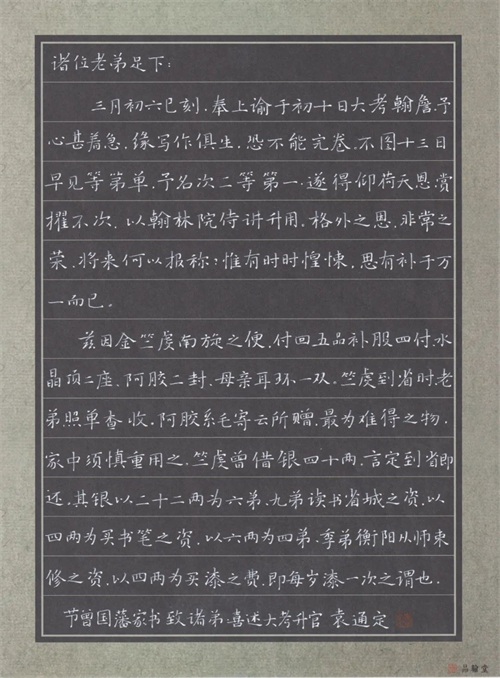 诸位老弟足下：
三月初六巳刻，奉上谕于初十日大考翰詹，予
心甚着急，缘写作俱生，恐不能完卷。不图十三日
早见等第单，予名次二等第一，遂得仰荷天恩，赏
擢不次，以翰林院侍讲升用。格外之恩，非常之
荣，将来何以报称？惟有时时惶悚，思有补于万
一而已。
兹因金竺虔南旋之便，付回五品补服四付，水
晶顶二座，阿胶二封，母亲耳环一双。竺虔到省时，老
弟照单查收。阿胶系毛寄云所赠，最为难得之物，
家中须慎重用之。竺虔曾借银四十两，言定到省即
还，其银以二十二两为六弟、九弟读书省城之资，以
四两为买书笔之资，以六两为四弟、季弟衡阳从师束
修之资，以四两为买漆之费，即每岁漆一次之谓也。
节曾国藩家书致诸弟·喜述大考升官 袁通定
品翰堂